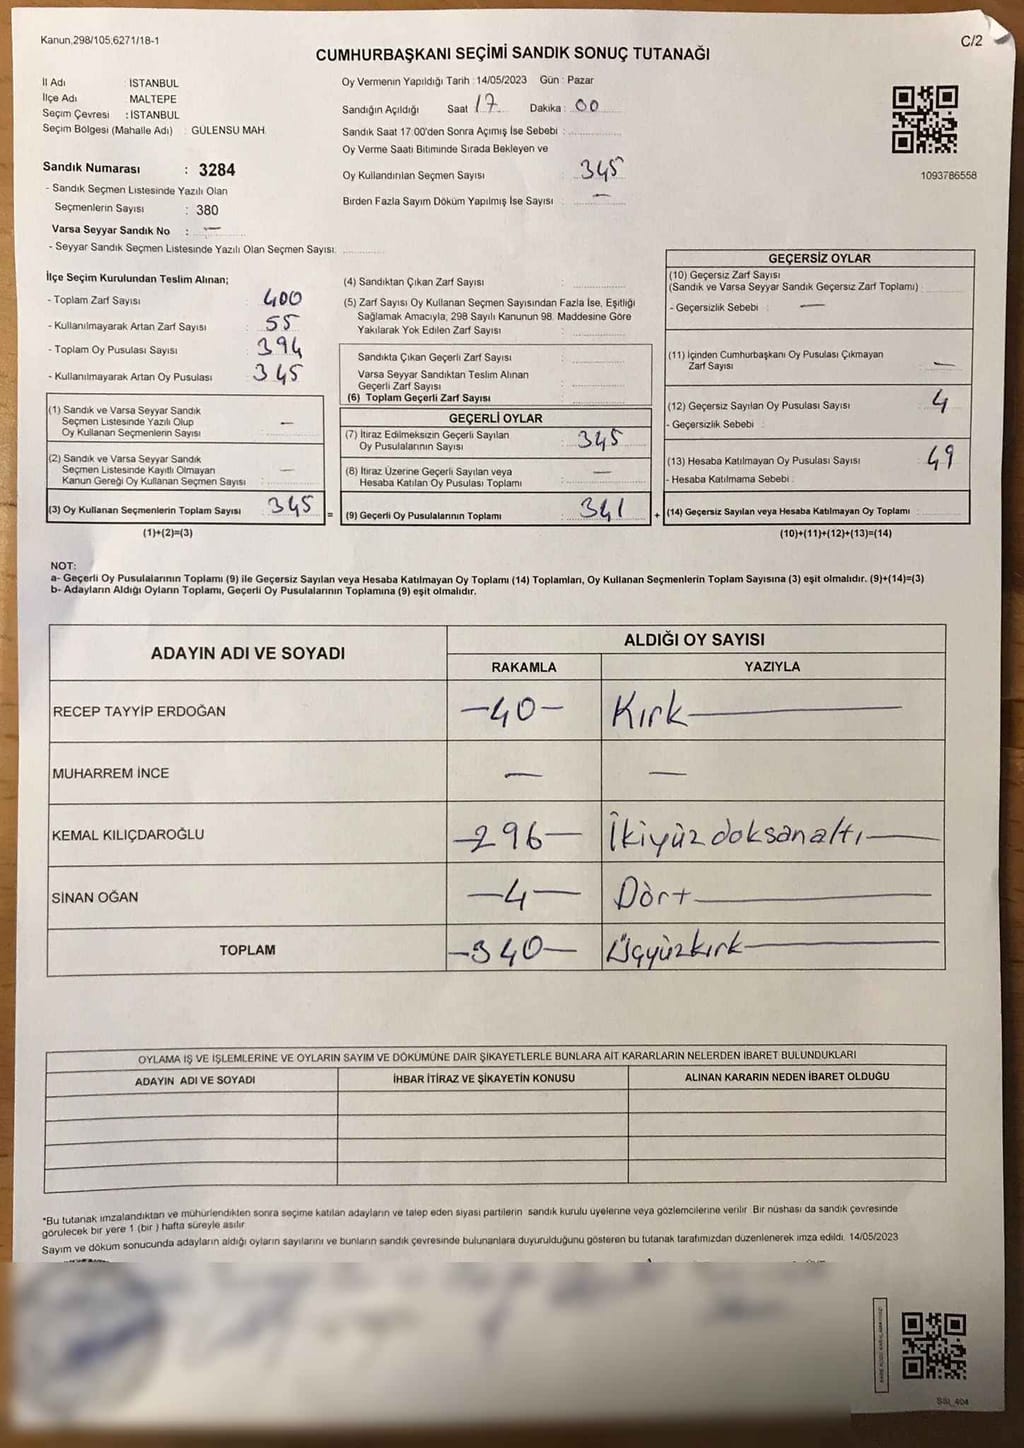 Kanun,298/105,6271/18-1
C/2
CUMHURBAŞKANI SEÇİMİ SANDIK SONUÇ TUTANAĞI
İl Adı : İSTANBUL
İlçe Adı MALTEPE
Seçim Çevresi : İSTANBUL
Seçim Bölgesi (Mahalle Adı) : GÜLENSU MAH.
Sandık Numarası : 3284
- Sandık Seçmen Listesinde Yazılı Olan
Seçmenlerin Sayısı : 380
Varsa Seyyar Sandık No : —
- Seyyar Sandık Seçmen Listesinde Yazılı Olan Seçmen Sayısı:
Oy Vermenin Yapıldığı Tarih : 14/05/2023 Gün : Pazar
Sandığın Açıldığı Saat 17 Dakika : 00
Sandık Saat 17.00'den Sonra Açımış İse Sebebi :
Oy Verme Saati Bitiminde Sırada Bekleyen ve
Oy Kullandırılan Seçmen Sayısı 345
Birden Fazla Sayım Döküm Yapılmış İse Sayısı —
1093786558
İlçe Seçim Kurulundan Teslim Alınan;
- Toplam Zarf Sayısı : 400
- Kullanılmayarak Artan Zarf Sayısı 55
- Toplam Oy Pusulası Sayısı 394
- Kullanılmayarak Artan Oy Pusulası 345
(1) Sandık ve Varsa Seyyar Sandık
Seçmen Listesinde Yazılı Olup
Oy Kullanan Seçmenlerin Sayısı —
(2) Sandık ve Varsa Seyyar Sandık
Seçmen Listesinde Kayıtlı Olmayan
Kanun Gereği Oy Kullanan Seçmen Sayısı —
(3) Oy Kullanan Seçmenlerin Toplam Sayısı 345 =
(1)+(2)=(3)
(4) Sandıktan Çıkan Zarf Sayısı :
(5) Zarf Sayısı Oy Kullanan Seçmen Sayısından Fazla İse, Eşitliği
Sağlamak Amacıyla, 298 Sayılı Kanunun 98. Maddesine Göre
Yakılarak Yok Edilen Zarf Sayısı :
Sandıkta Çıkan Geçerli Zarf Sayısı :
Varsa Seyyar Sandıktan Teslim Alınan
Geçerli Zarf Sayısı :
(6) Toplam Geçerli Zarf Sayısı
GEÇERLİ OYLAR
(7) İtiraz Edilmeksizin Geçerli Sayılan
Oy Pusulalarının Sayısı 345
(8) İtiraz Üzerine Geçerli Sayılan veya
Hesaba Katılan Oy Pusulası Toplamı —
(9) Geçerli Oy Pusulalarının Toplamı 341 +
GEÇERSİZ OYLAR
(10) Geçersiz Zarf Sayısı
(Sandık ve Varsa Seyyar Sandık Geçersiz Zarf Toplamı) :
- Geçersizlik Sebebi : —
(11) İçinden Cumhurbaşkanı Oy Pusulası Çıkmayan
Zarf Sayısı —
(12) Geçersiz Sayılan Oy Pusulası Sayısı 4
- Geçersizlik Sebebi :
(13) Hesaba Katılmayan Oy Pusulası Sayısı 49
- Hesaba Katılmama Sebebi :
(14) Geçersiz Sayılan veya Hesaba Katılmayan Oy Toplamı
(10)+(11)+(12)+(13)=(14)
NOT:
a- Geçerli Oy Pusulalarının Toplamı (9) ile Geçersiz Sayılan veya Hesaba Katılmayan Oy Toplamı (14) Toplamları, Oy Kullanan Seçmenlerin Toplam Sayısına (3) eşit olmalıdır. (9)+(14)=(3)
b- Adayların Aldığı Oyların Toplamı, Geçerli Oy Pusulalarının Toplamına (9) eşit olmalıdır.
ADAYIN ADI VE SOYADI ALDIĞI OY SAYISI
RAKAMLA YAZIYLA
RECEP TAYYİP ERDOĞAN -40- Kırk—
MUHARREM İNCE — —
KEMAL KILIÇDAROĞLU -296- İkiyüz doksan altı—
SİNAN OĞAN -4- Dört—
TOPLAM -340- Üçyüzkırk—
OYLAMA İŞ VE İŞLEMLERİNE VE OYLARIN SAYIM VE DÖKÜMÜNE DAİR ŞİKAYETLERLE BUNLARA AİT KARARLARIN NELERDEN İBARET BULUNDUKLARI
ADAYIN ADI VE SOYADI İHBAR İTİRAZ VE ŞİKAYETİN KONUSU ALINAN KARARIN NEDEN İBARET OLDUĞU
*Bu tutanak imzalandıktan ve mühürlendikten sonra seçime katılan adayların ve talep eden siyasi partilerin sandık kurulu üyelerine veya gözlemcilerine verilir. Bir nüshası da sandık çevresinde
görülecek bir yere 1 (bir ) hafta süreyle asılır
Sayım ve döküm sonucunda adayların aldığı oyların sayılarını ve bunların sandık çevresinde bulunanlara duyurulduğunu gösteren bu tutanak tarafımızdan düzenlenerek imza edildi. 14/05/2023
SSI_404